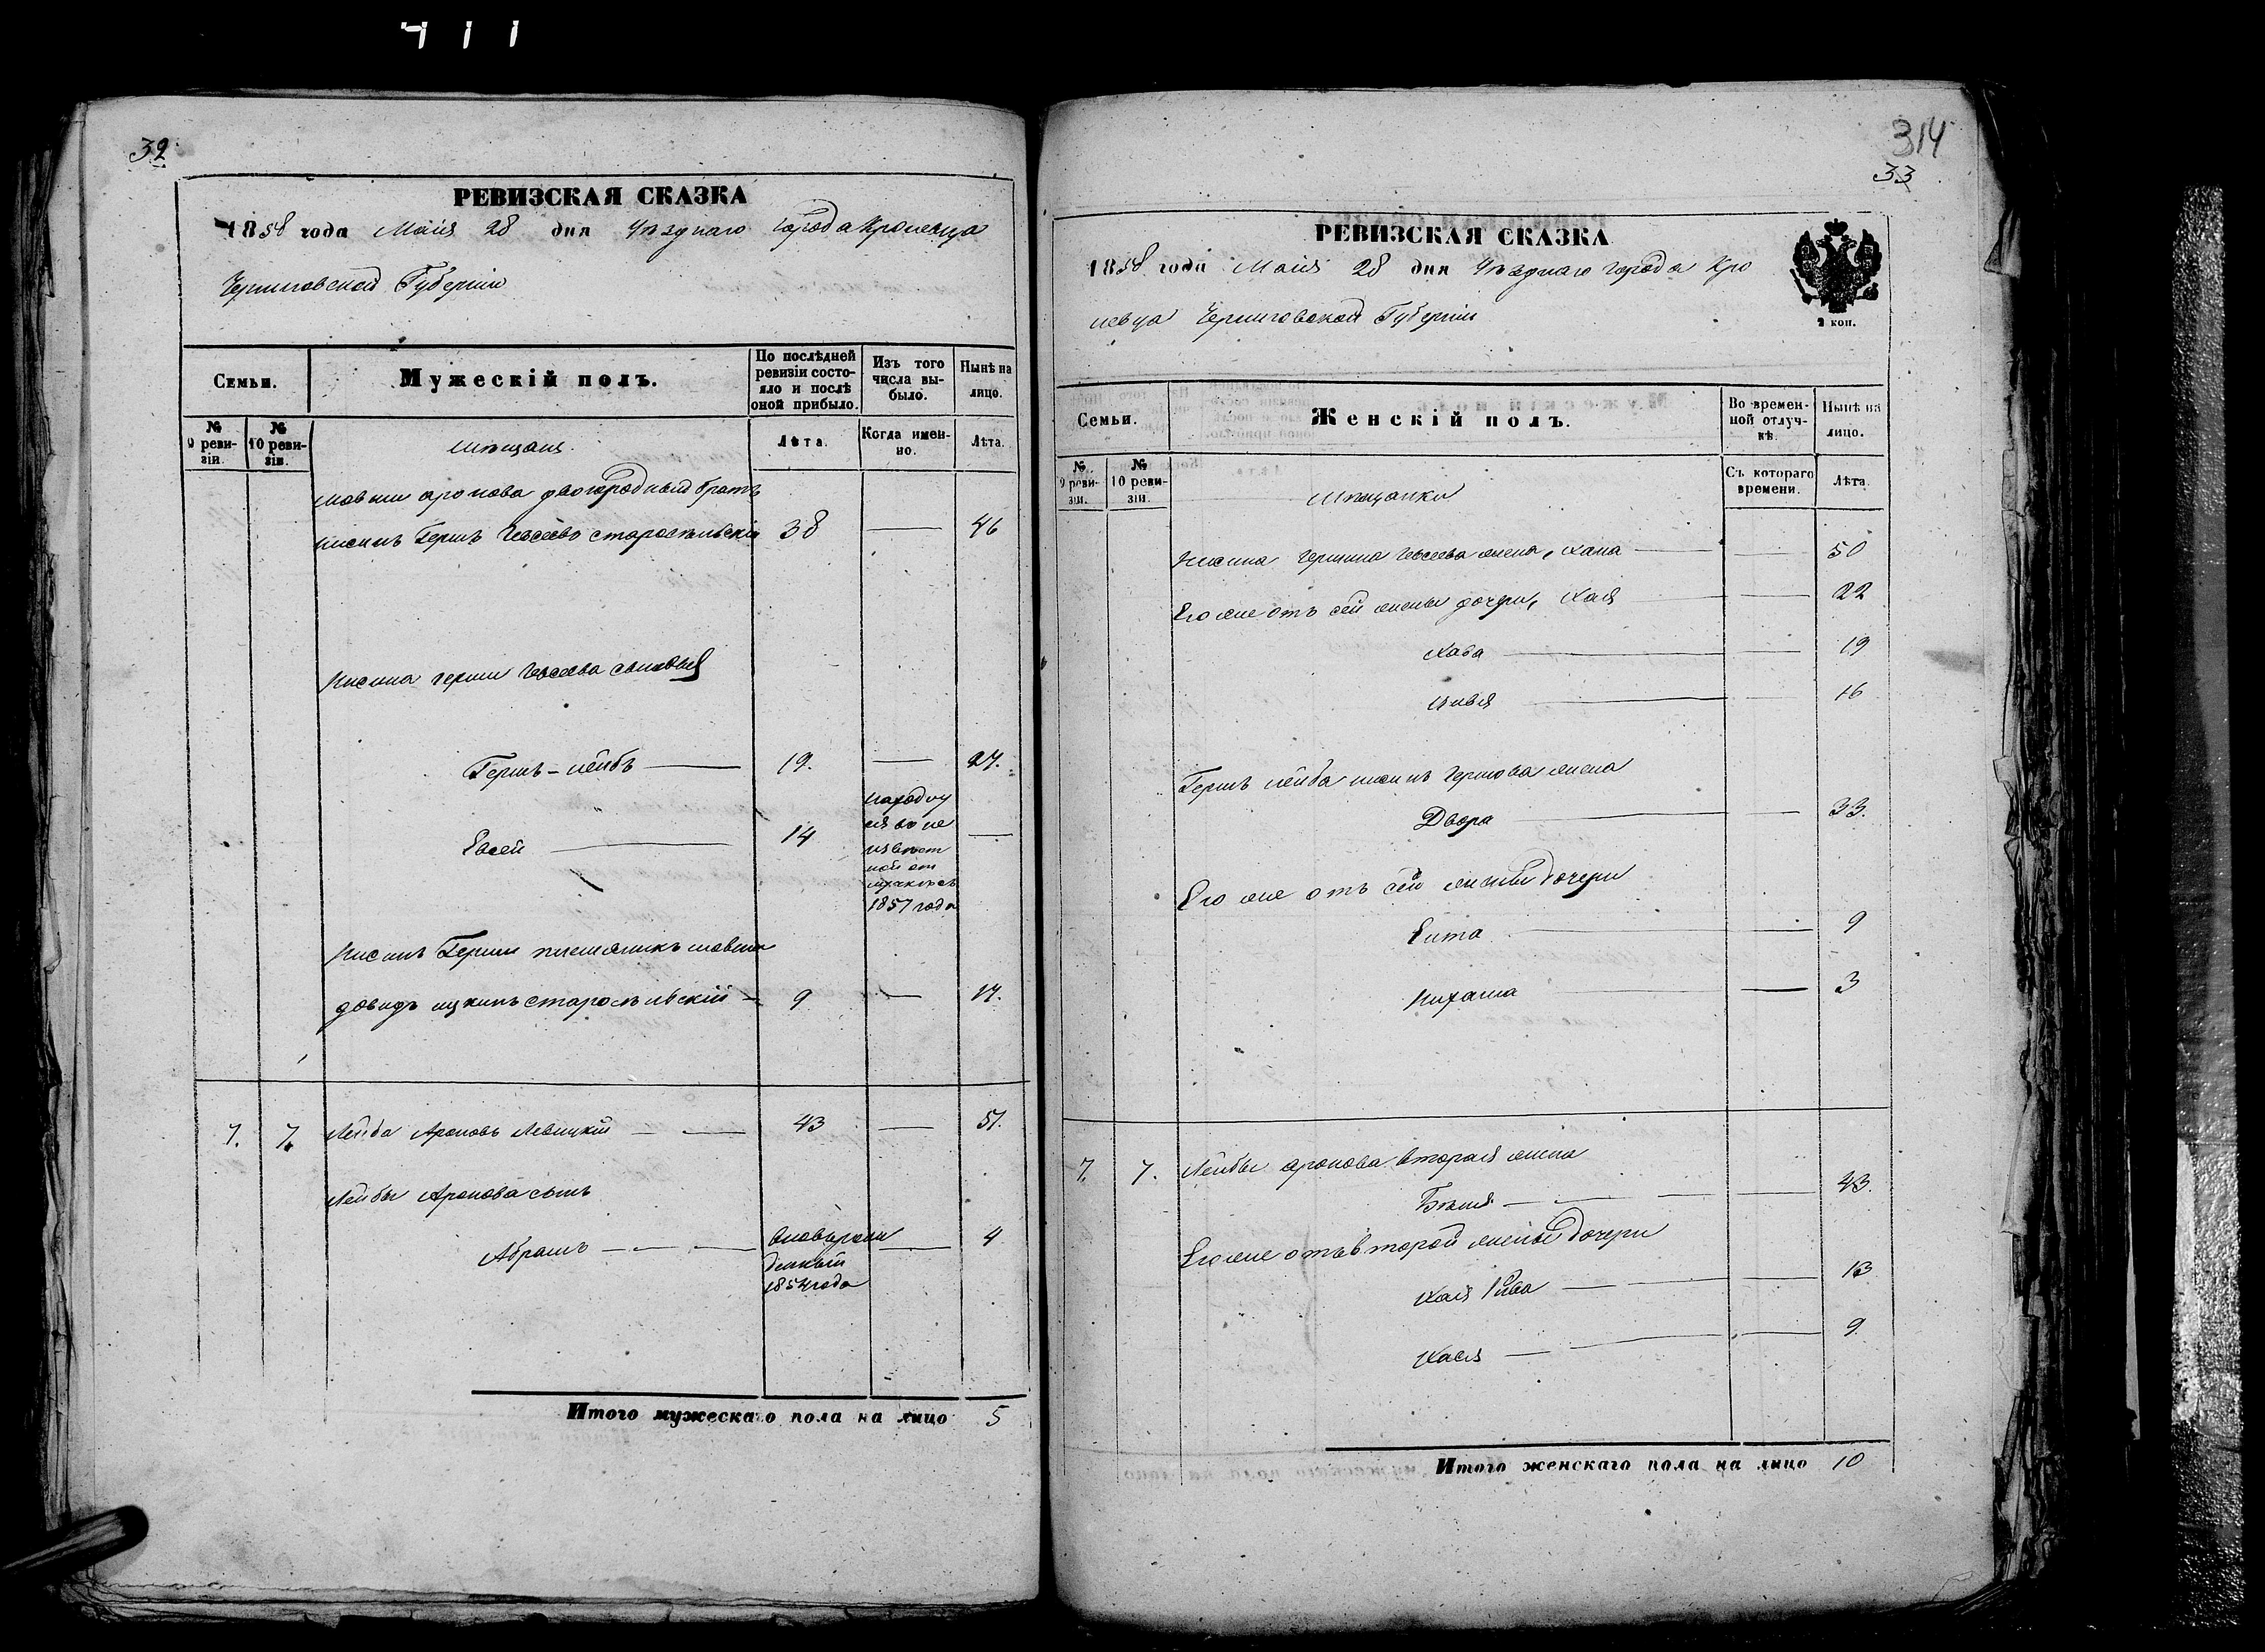 411
32
РЕВИЗСКАЯ СКАЗКА
1858 года Маія 28 дня Уѣзднаго города Кролевца
Черниговской Губерніи
Семьи.
Мужескій полъ.
По послѣдней ревизіи состояло и послѣ оной прибыло.
Изъ того числа выбыло.
Нынѣ на лицо.
№ 9 ревизіи.
№ 10 ревизіи.
Мѣщане.
Лѣта.
Когда именно.
Лѣта.
Мовши Аронова двоюродный братъ
Нисинъ Гершъ Іевсеевъ Старосельскій 38 — 46
Нисина Герши Іевсеева сыновья
Гершъ-Лейбъ — 19. — 27.
Евсей — 14 —
находит
ся въ не
извѣст
ной от
лучкѣ съ
1857 года
Нисинъ Герши племяникъ Мовша
Довидъ Ицкинъ Старосельскій — 9 — 17.
7. 7. Лейба Ароновъ Левицкій — 43 — 51.
Лейбы Аронова сынъ
Абрамъ — вновьрож
денный
1854 года — 4
Итого мужескаго пола на лицо 5
314
33
РЕВИЗСКАЯ СКАЗКА
1858 года Маія 28 дня Уѣзднаго города Кро
левца Черниговской Губерніи
2 коп.
Семьи.
Женскій полъ.
Во временной отлучкѣ.
Нынѣ на лицо.
№ 9 ревизіи.
№ 10 ревизіи.
Мѣщанки
Съ котораго времени.
Лѣта.
Нисина Гершина Іевсеева жена, Хана — — 50
Его же отъ сей жены дочери, Хая — — 22
Хава — — 19
Цивья — — 16
Гершъ Лейба Нисинъ Гершова жена
Двора — — 33.
Его же отъ сей жены дочери
Гита — — 9
— — 3
7. 7. Лейбы Аронова вторая жена
Бейля — — 43.
Его же отъ второй жены дочери
Хая Рива — — 13
Хася — — 9
Итого женскаго пола на лицо 10